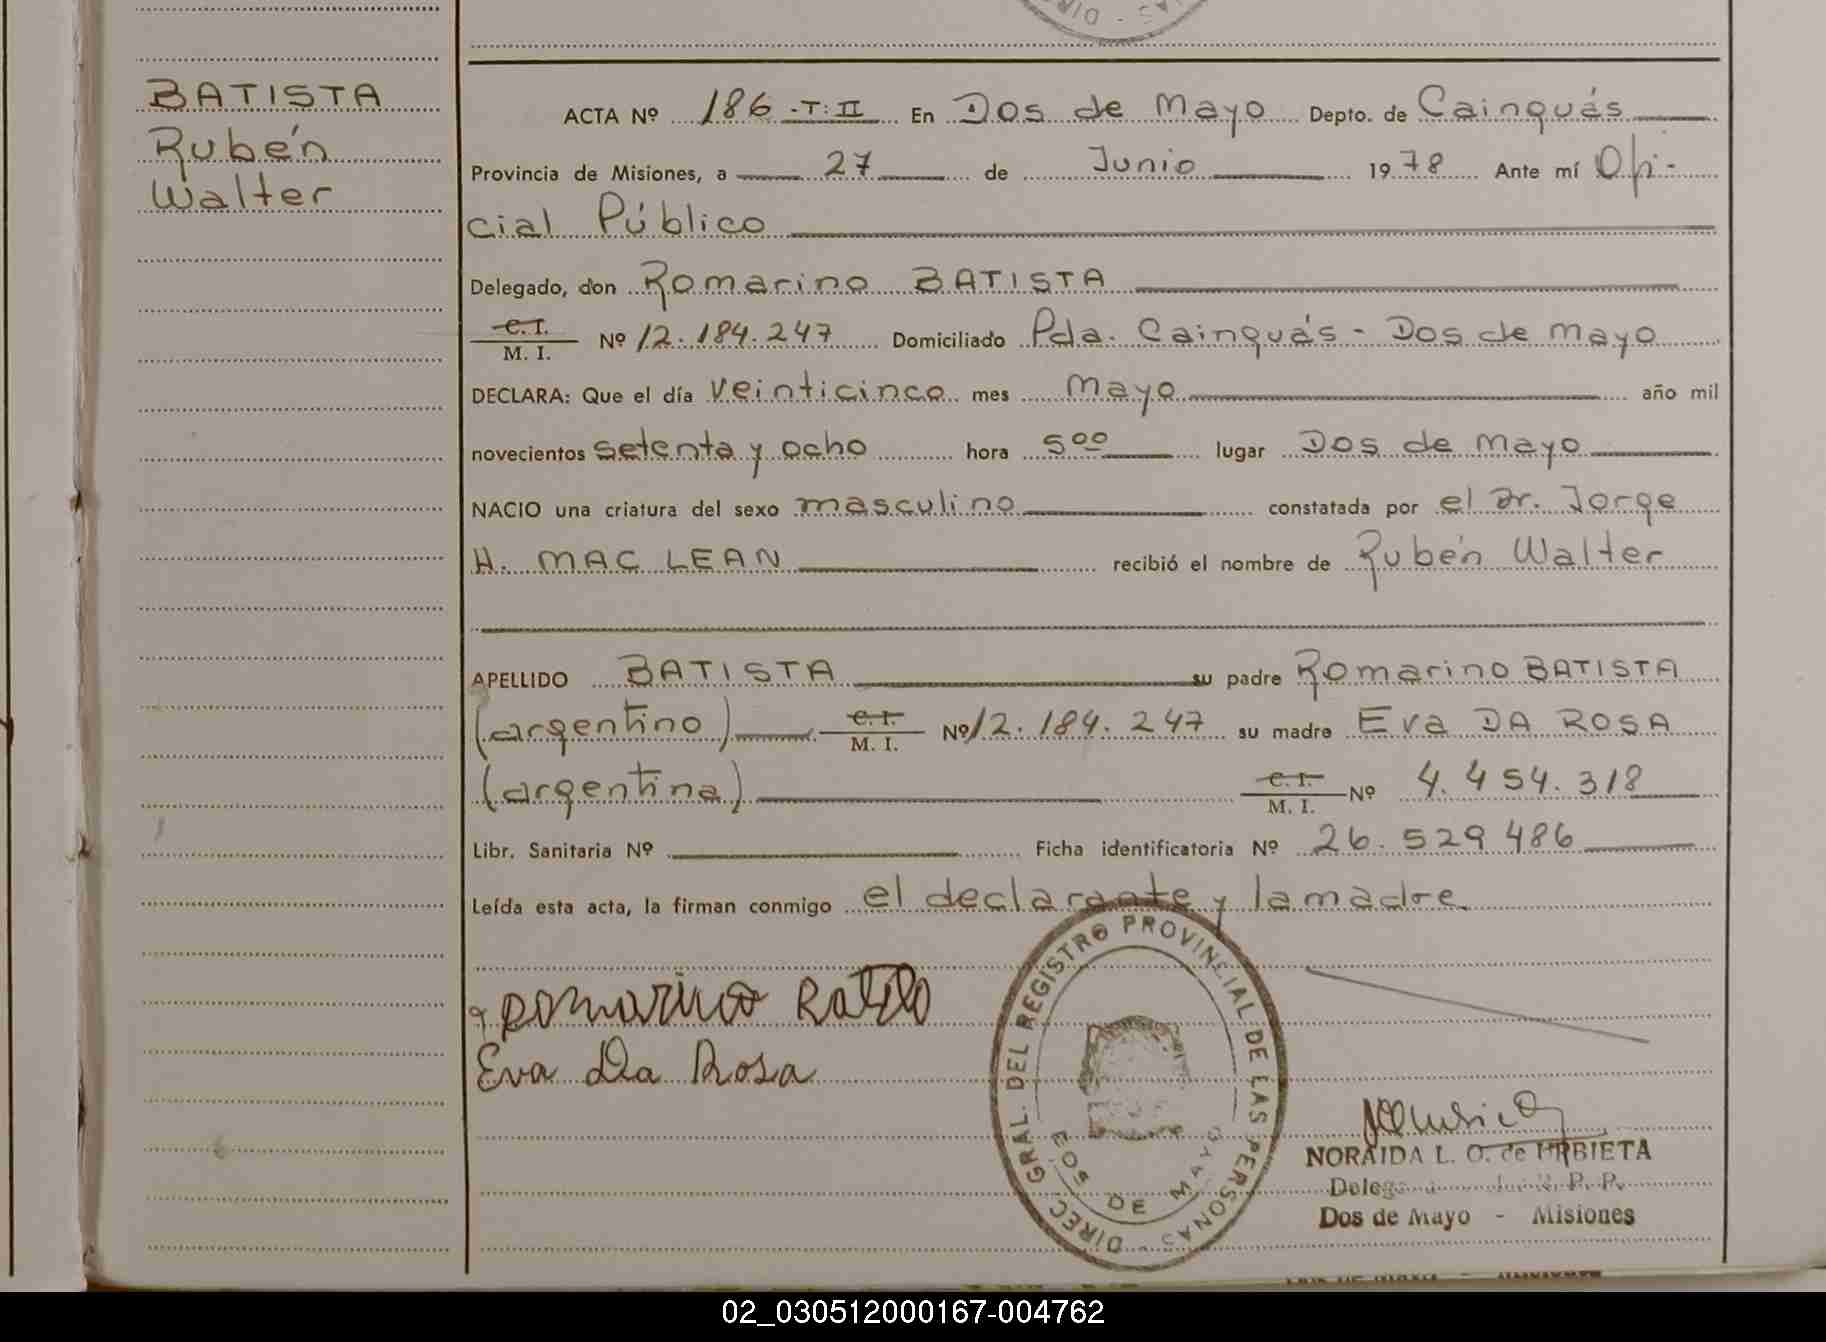 BATISTA
Rubén
Walter
ACTA Nº 186 - T: II En Dos de Mayo Depto. de Cainguás
Provincia de Misiones, a 27 de Junio 1978 Ante mí Ofi-
cial Público
Delegado, don Romarino BATISTA
C. I.
M. I. Nº 12.184.247 Domiciliado Pda. Cainguás - Dos de Mayo
DECLARA: Que el día veinticinco mes Mayo año mil
novecientos setenta y ocho hora 5 00 lugar Dos de Mayo
NACIO una criatura del sexo masculino constatada por el Dr. Jorge
H. MAC LEAN recibió el nombre de Rubén Walter
APELLIDO BATISTA su padre Romarino BATISTA
(argentino) C. I. M. I. Nº 12.184.247 su madre Eva DA ROSA
(argentina) C. I. M. I. Nº 4.454.318
Libr. Sanitaria Nº Ficha identificatoria Nº 26.529.486
Leída esta acta, la firman conmigo el declarante y la madre.
Romarino
Eva Da Rosa
DIREC. GRAL. DEL REGISTRO PROVINCIAL DE LAS PERSONAS
DOS DE MAYO
NORAIDA L. O. de URBIETA
R. P. P.
Dos de Mayo - Misiones
02_030512000167-004762